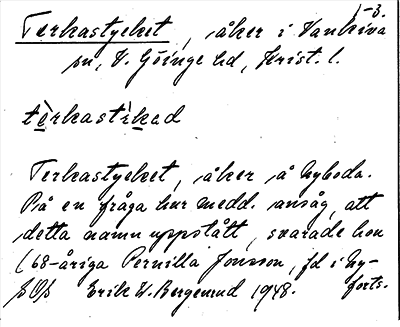 1-3.
Terkastycket, åker i Vankiva
sn, V. Göinge hd, Krist. l.
tèrkastìkad
Terkastycket, åker å Nyboda.
På en fråga hur medd. ansåg, att
detta namn uppstått, svarade hon
(68-åriga Pernilla Jonsson, fd i Ny-
forts.
Erik W. Bergenrud 1948.